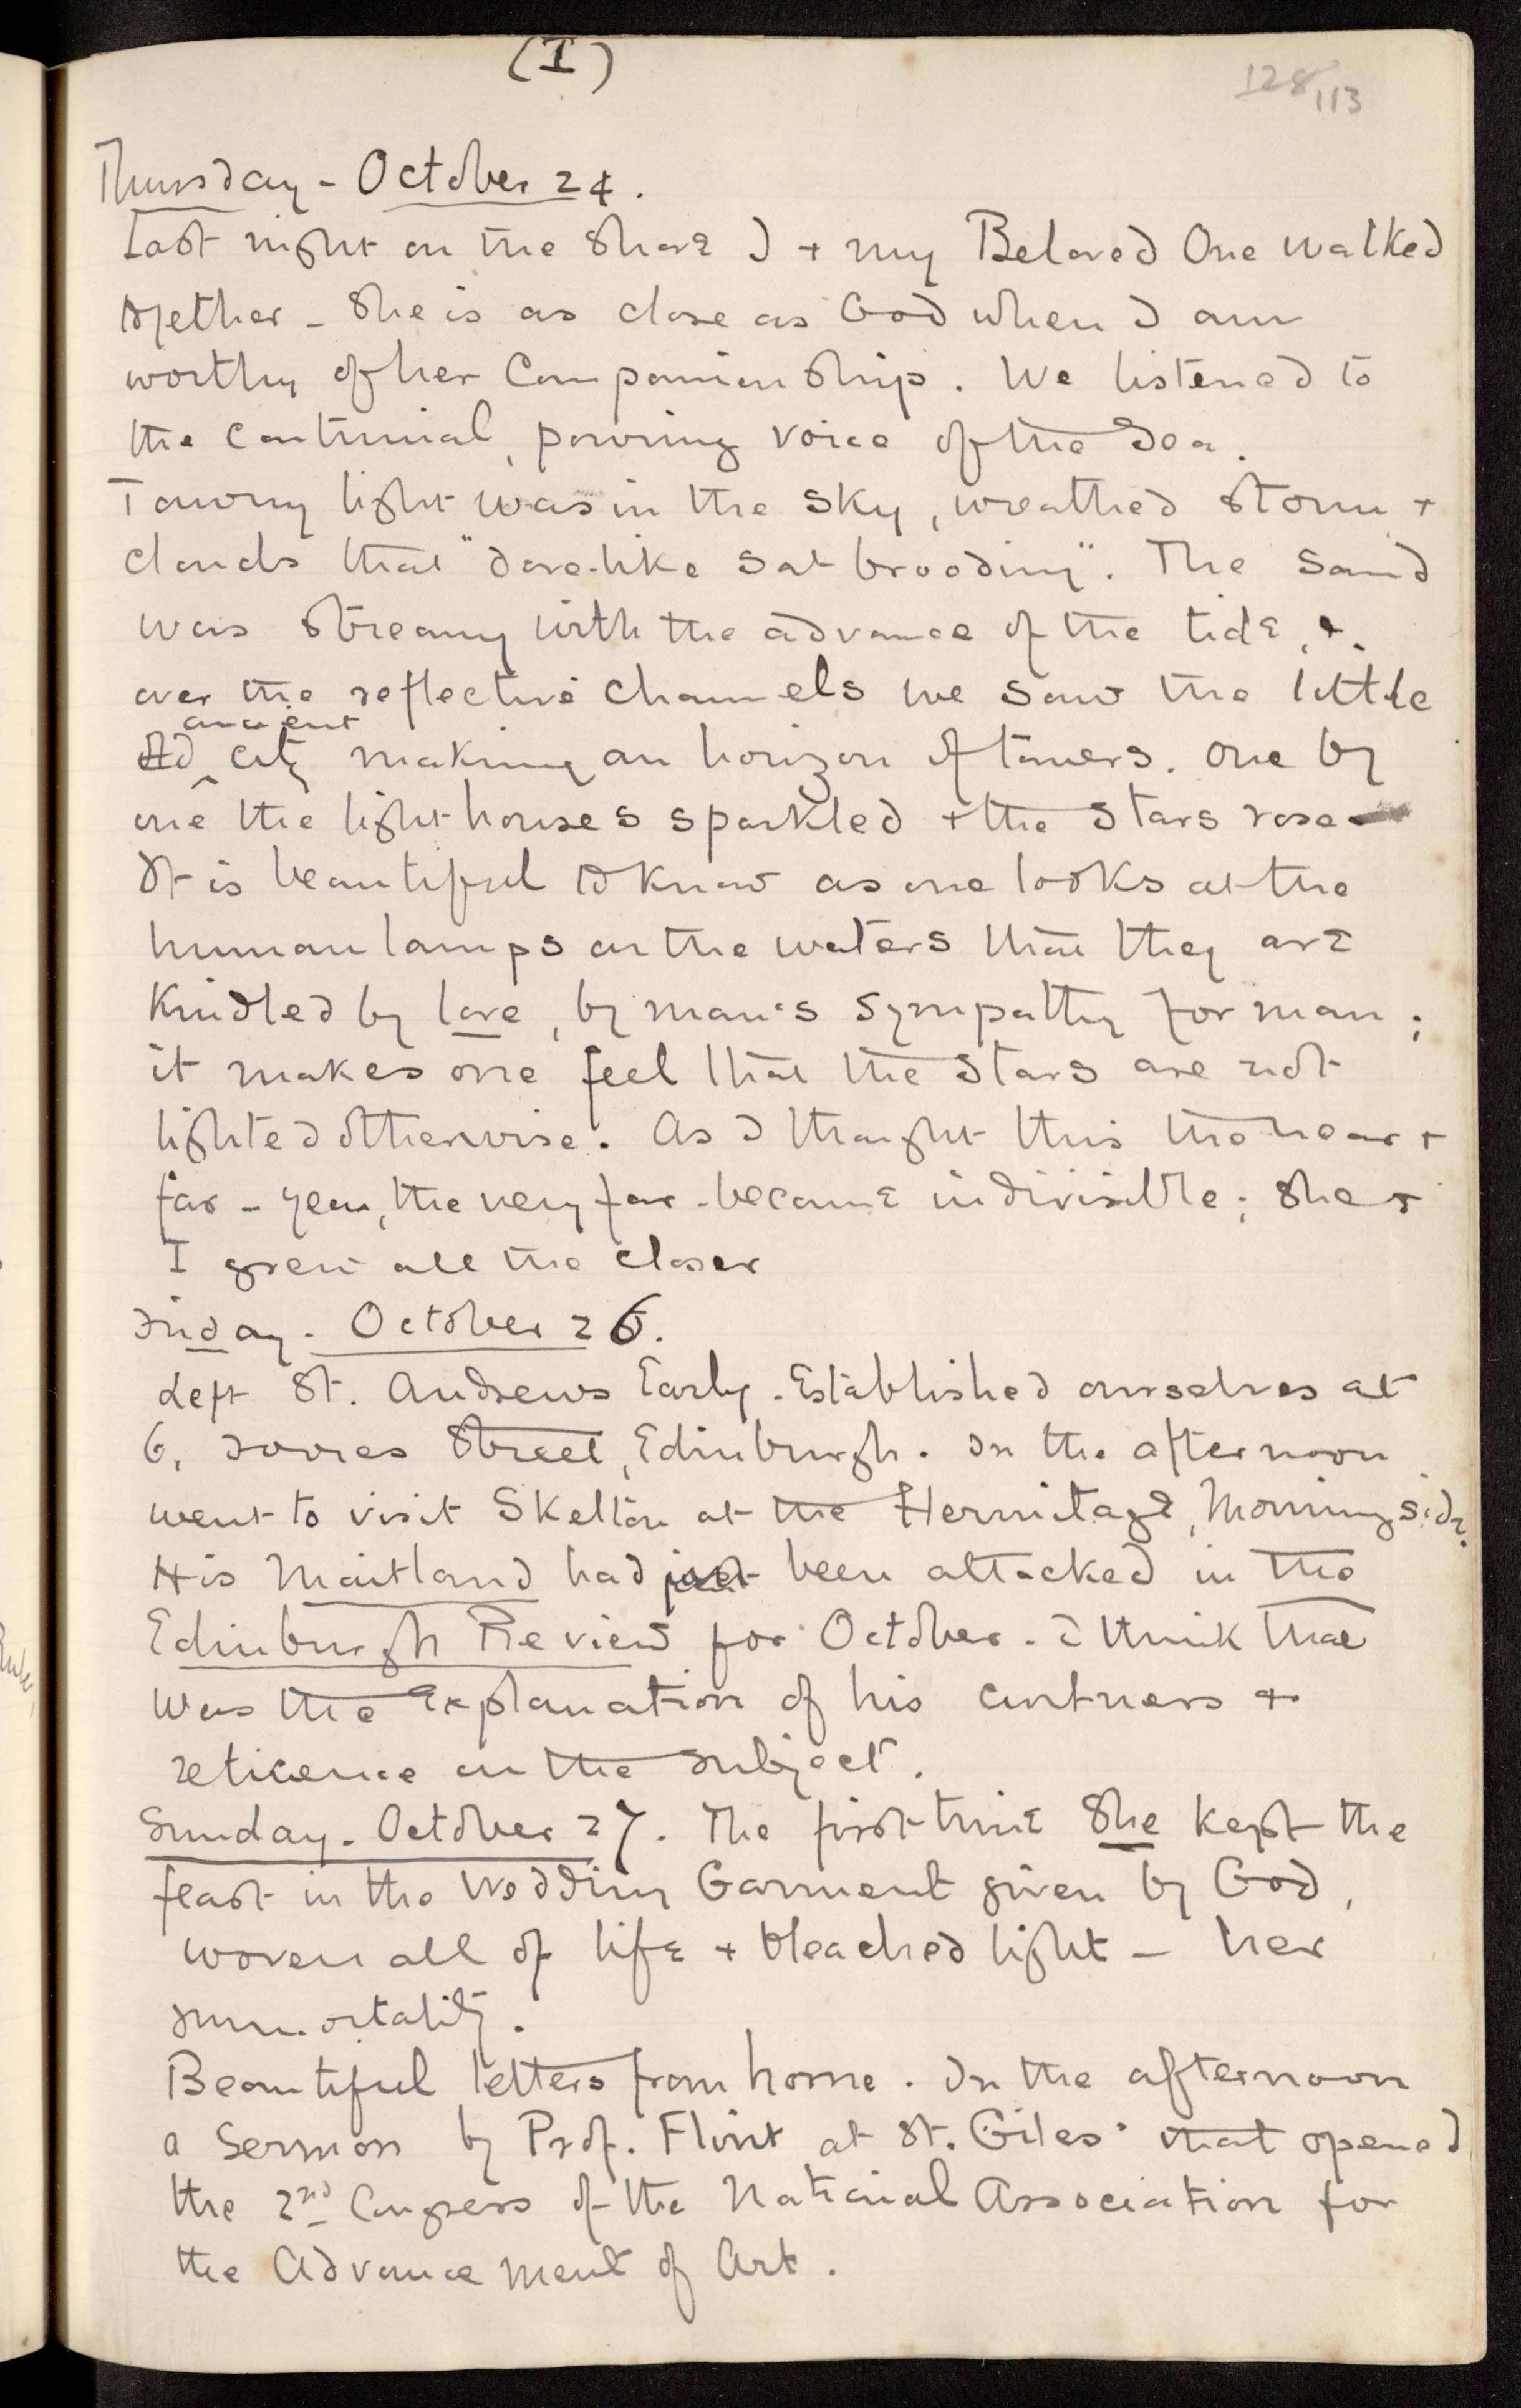 (I)
128 113
Thursday - October 24.
Last night on the shore I + my Beloved One walked
together - She is as close as God when I am
worthy of her Companionship. We listened to
the continual, pouring voice of the Sea.
Tawny light was in the sky, wreathed storm +
clouds that "dove-like sat brooding". The sand
was streamy with the advance of the tide, +
over the reflective channels we saw the little
old ancient city making an horizon of towers. One by
one the light-houses sparkled + the stars rose -
It is beautiful to know as one looks at the
human lamps on the waters that they are
kindled by love, by man's sympathy for man;
it makes one feel that the stars are not
lighted otherwise. As I thought this the near +
far - yea, the very far - became indivisible; she +
I grew all the closer
Friday - October 26.
Left St. Andrews Early. Established ourselves at
6, Street, Edinburgh. In the afternoon
went to visit Skelton at the Hermitage, Morningside.
His Maitland had just been attacked in the
Edinburgh Review for October. I think that
was the explanation of his curtness +
reticence on the subject.
Sunday - October 27. The first time She kept the
feast in the Wedding Garment given by God,
woven all of life + bleached light - her
immortality.
Beautiful letters from home. In the afternoon
a Sermon by Prof. Flint at St. Giles' that opened
the 2nd Congress of the National Association for
the Advancement of Art.